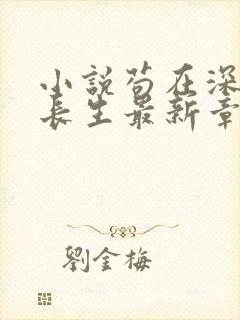 小說苟在深
長生最新章
劉金梅